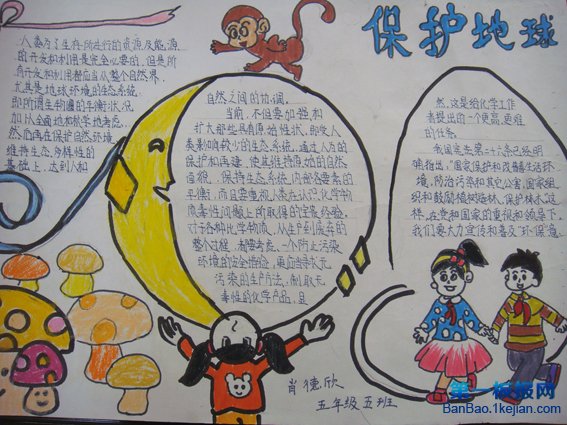 保护地球
人类为了生存所进行的资源及能源
的开发和利用是完全必要的，但是所
有开发和利用都应当从整个自然界，
尤其是地球环境的生态系统，
即所谓生物圈的平衡状况
加以全面地和科学地考虑。
然后再在保护自然环境
维持生态多样性的
基础上，达到人和
自然之间的协调。
当前，不但要加强和
扩大那些具有原始性状，即受人
类影响较少的生态系统，通过人为的
保护和再建，使其维持原始的自然
面貌，保持生态系统内部各要素的
平衡，而且要重视人类在认识化学物
质毒性问题上所取得的宝贵经验。
对于各种化学物质，从生产到废弃的
整个过程，都要考虑一个防止污染
环境的安全措施，更应当寻求无
污染的生产方法，制取无
毒性的化学产品，且
然，这是给化学工作
者提出的一个更高、更难
的任务。
我国宪法第二十六条已经明
确指出，“国家保护和改善生活环
境，防治污染和其它公害，国家组
织和鼓励植树造林、保护林木。”这
样，在党和国家的重视和领导下。
我们要大力宣传和普及“环保”意
肖德欣
五年级五班
第一板报网
BanBao.1kejian.com